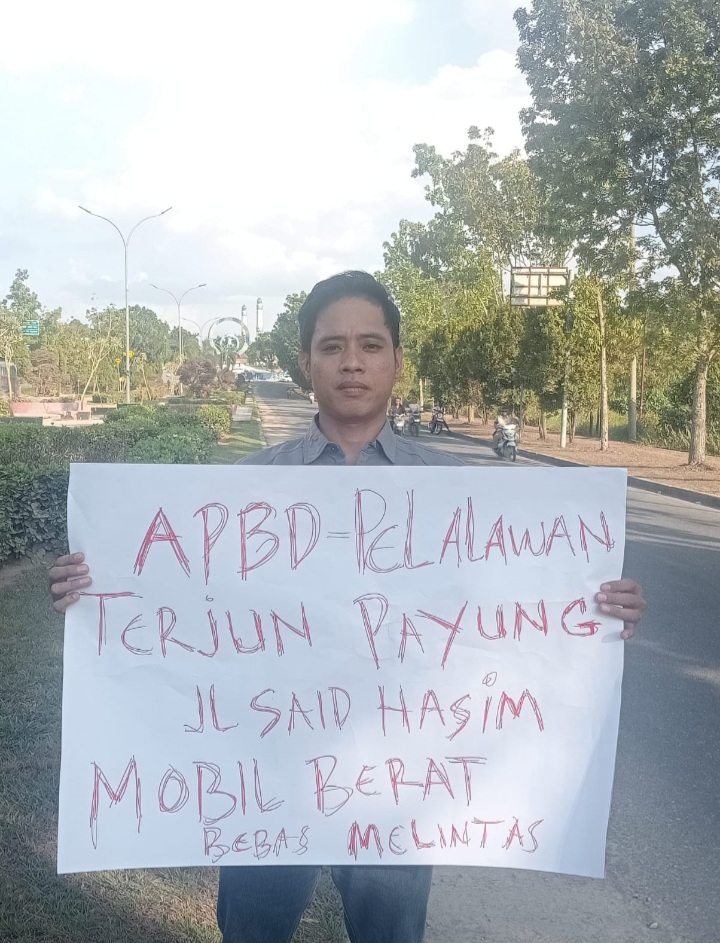 APBD=PELALAWAN
TERJUN PAYUNG
JL SAID HASIM
MOBIL BERAT
BEBAS MELINTAS